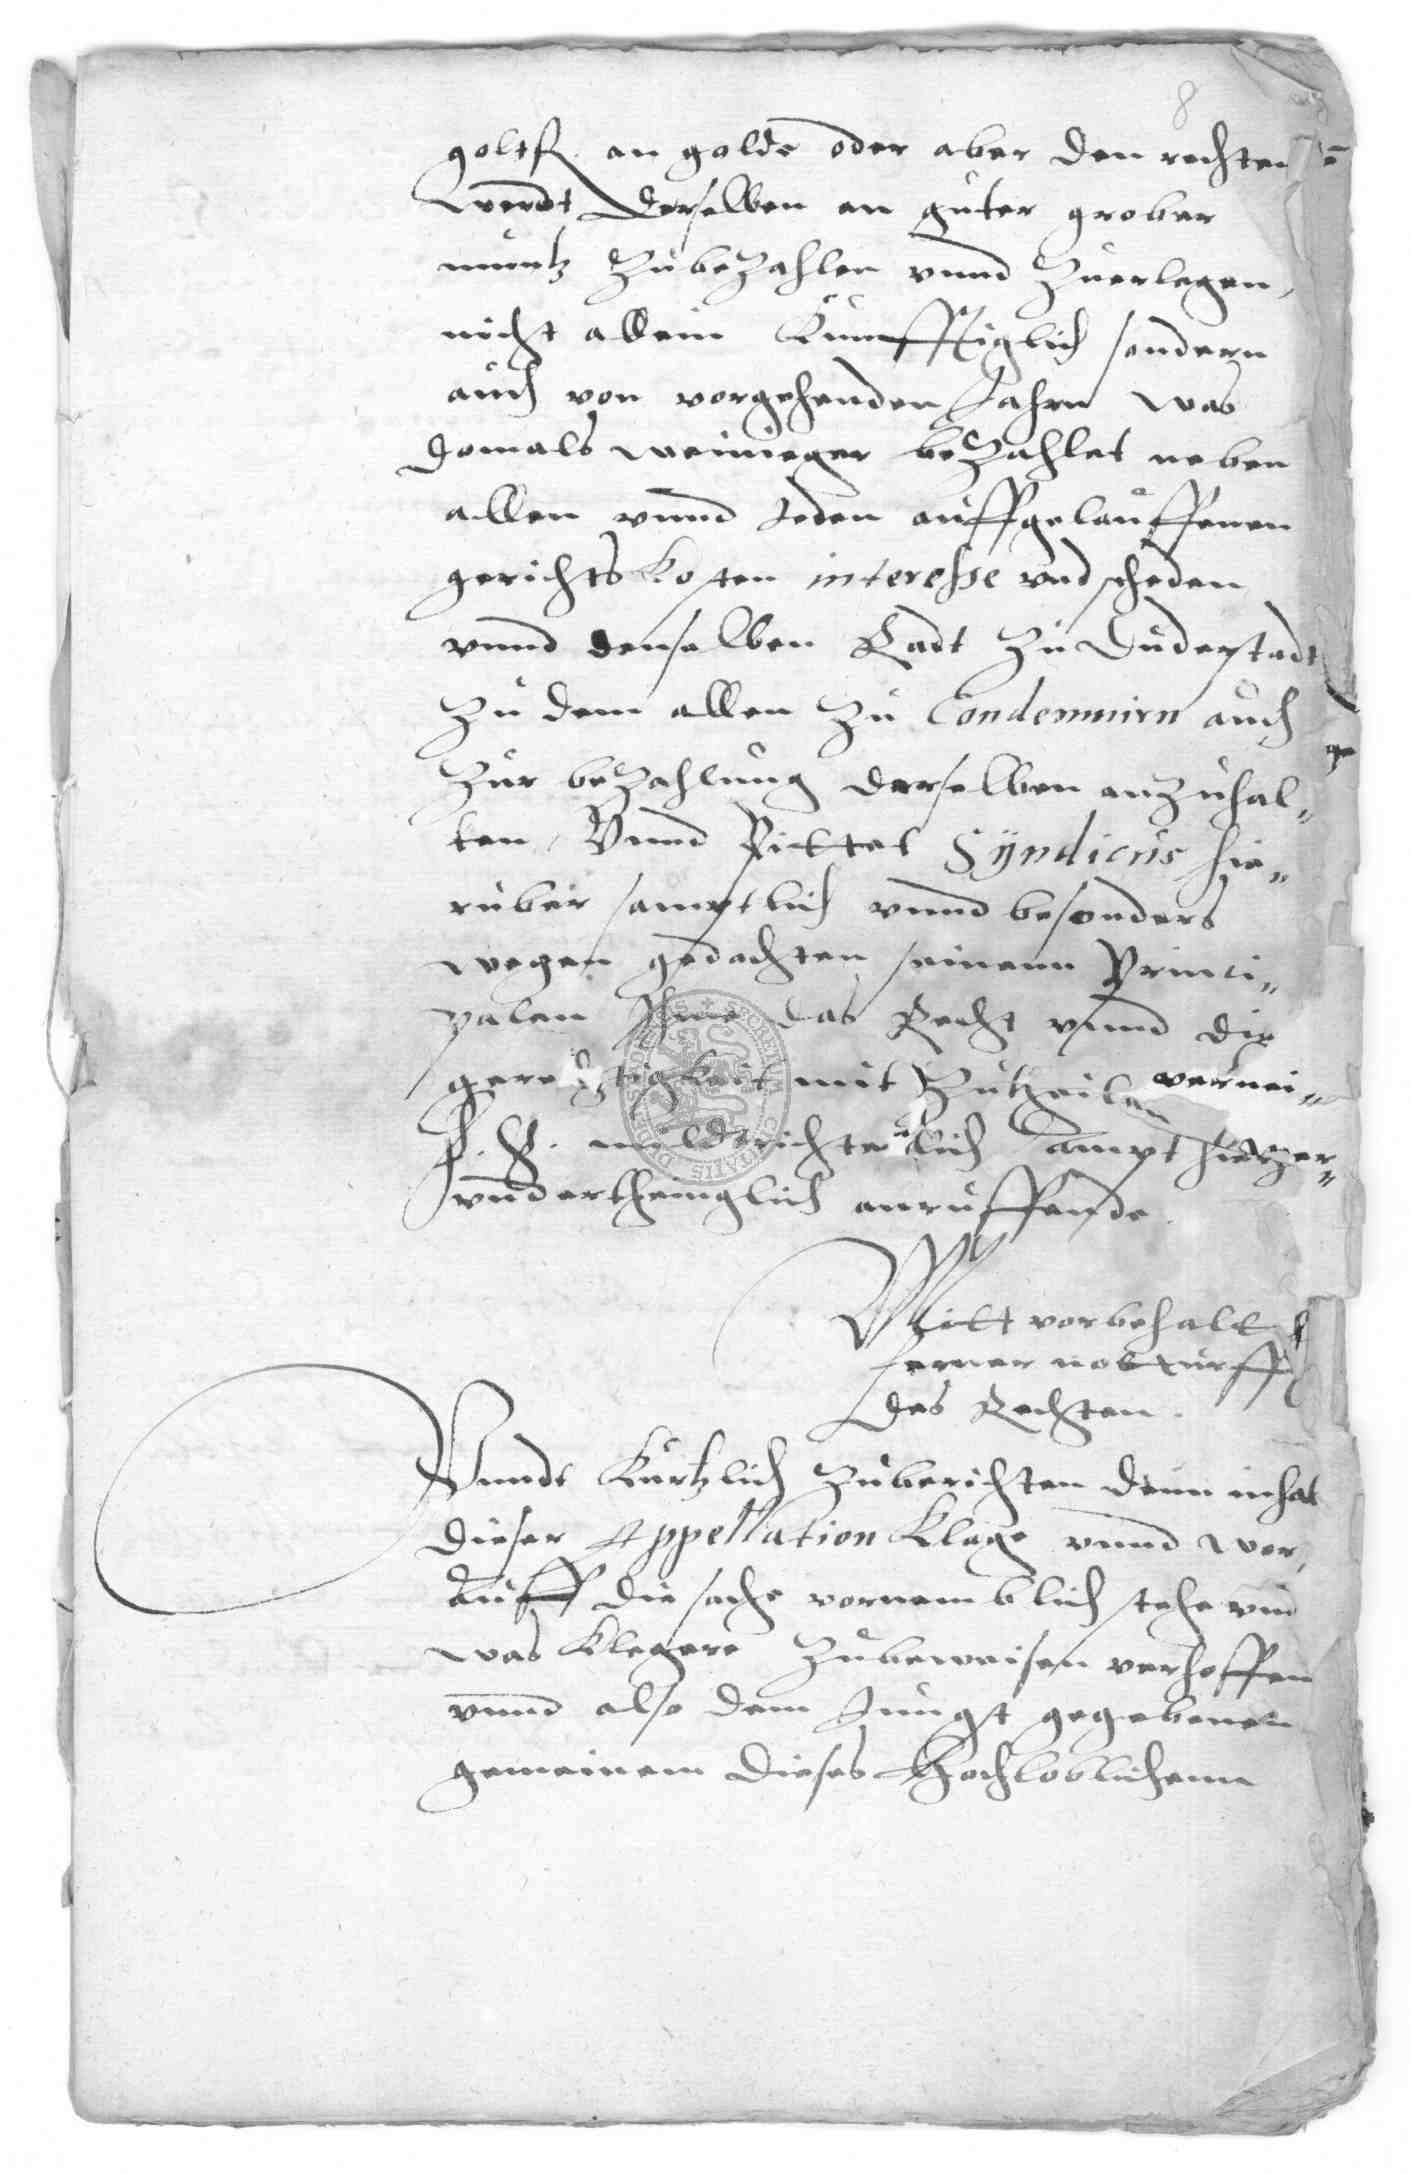 8
goltfl. an golde oder aber den rechten
werdt derselben an guter grober
muntz zubezahlen vnnd zuerlegen,
nicht allein kunfftiglich sondern
auch von vorgehenden Jahrn was
domals weinieger bezahlet neben
allen vnnd Jeden auffgelauffenen
gerichts kosten interesse vnd scheden
vnnd denselben Radt zu Duderstadt
zu dem allen zu Condemnirn auch
zur bezahlung derselben anzuhal„
ten, Vnnd Bittet Syndicus hie„
ruber samptlich vnnd besonders
wegen gedachten seinenn Princi„
palen Ihme das Recht vnnd die
gerechtigkeit mit zutheilen
E. G. mildtrichterlich ampt hiezu
vnderthenglich anruffende.
Mitt vorbehalt
ferner notturfft
des Rechten.
Vnndt kurtzlich zuberichten denn inhalt
dieser Appellation klage vnnd wor,
auff die sache vornemblich stehe vnd
was klegere zubeweisen verhoffen
vnnd also dem Jungst gegebenen
gemeinem dieses Hochloblichenn